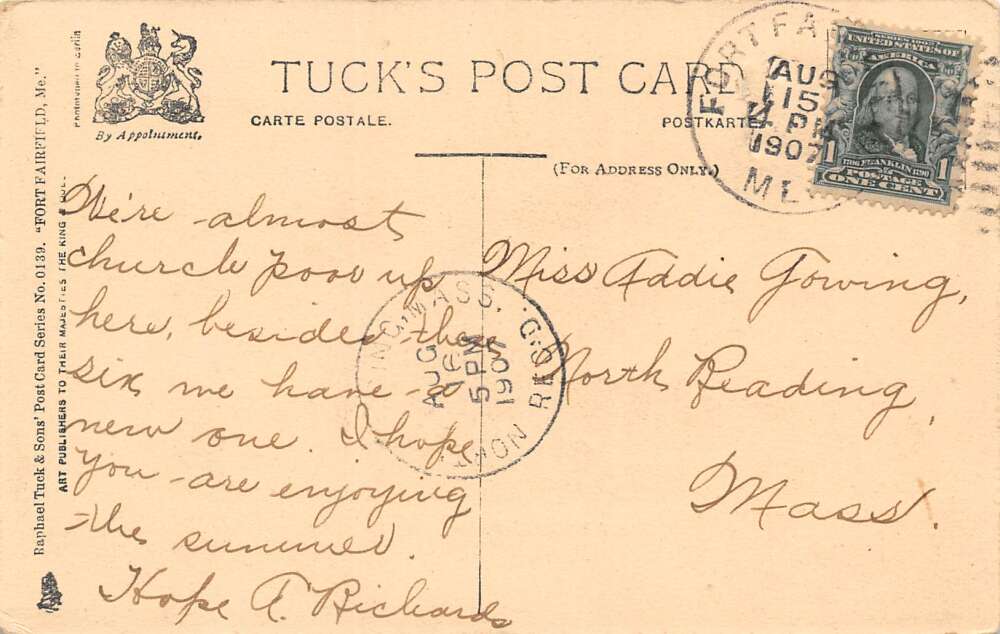 TUCK'S POST CARD
CARTE POSTALE.
POSTKARTE
(FOR ADDRESS ONLY.)
By Appointment.
Raphael Tuck & Sons' Post Card Series No. 0139. "FORT FAIRFIELD, Me."
ART PUBLISHERS TO THEIR MAJESTIES THE KING
FORT FA
AUG
15
4 PM
1907
ME
SERIES 1902
UNITED STATES OF
AMERICA
1706 FRANKLIN 1790
1 POSTAGE 1
ONE CENT
We're almost
church poor up
here, besides these
six we have a
new one. I hope
you are enjoying
the summer.
Hope A. Richards
Miss Addie Gowing,
North Reading,
Mass.
MASS.
REC'D.
AUG
16
5 PM
1907